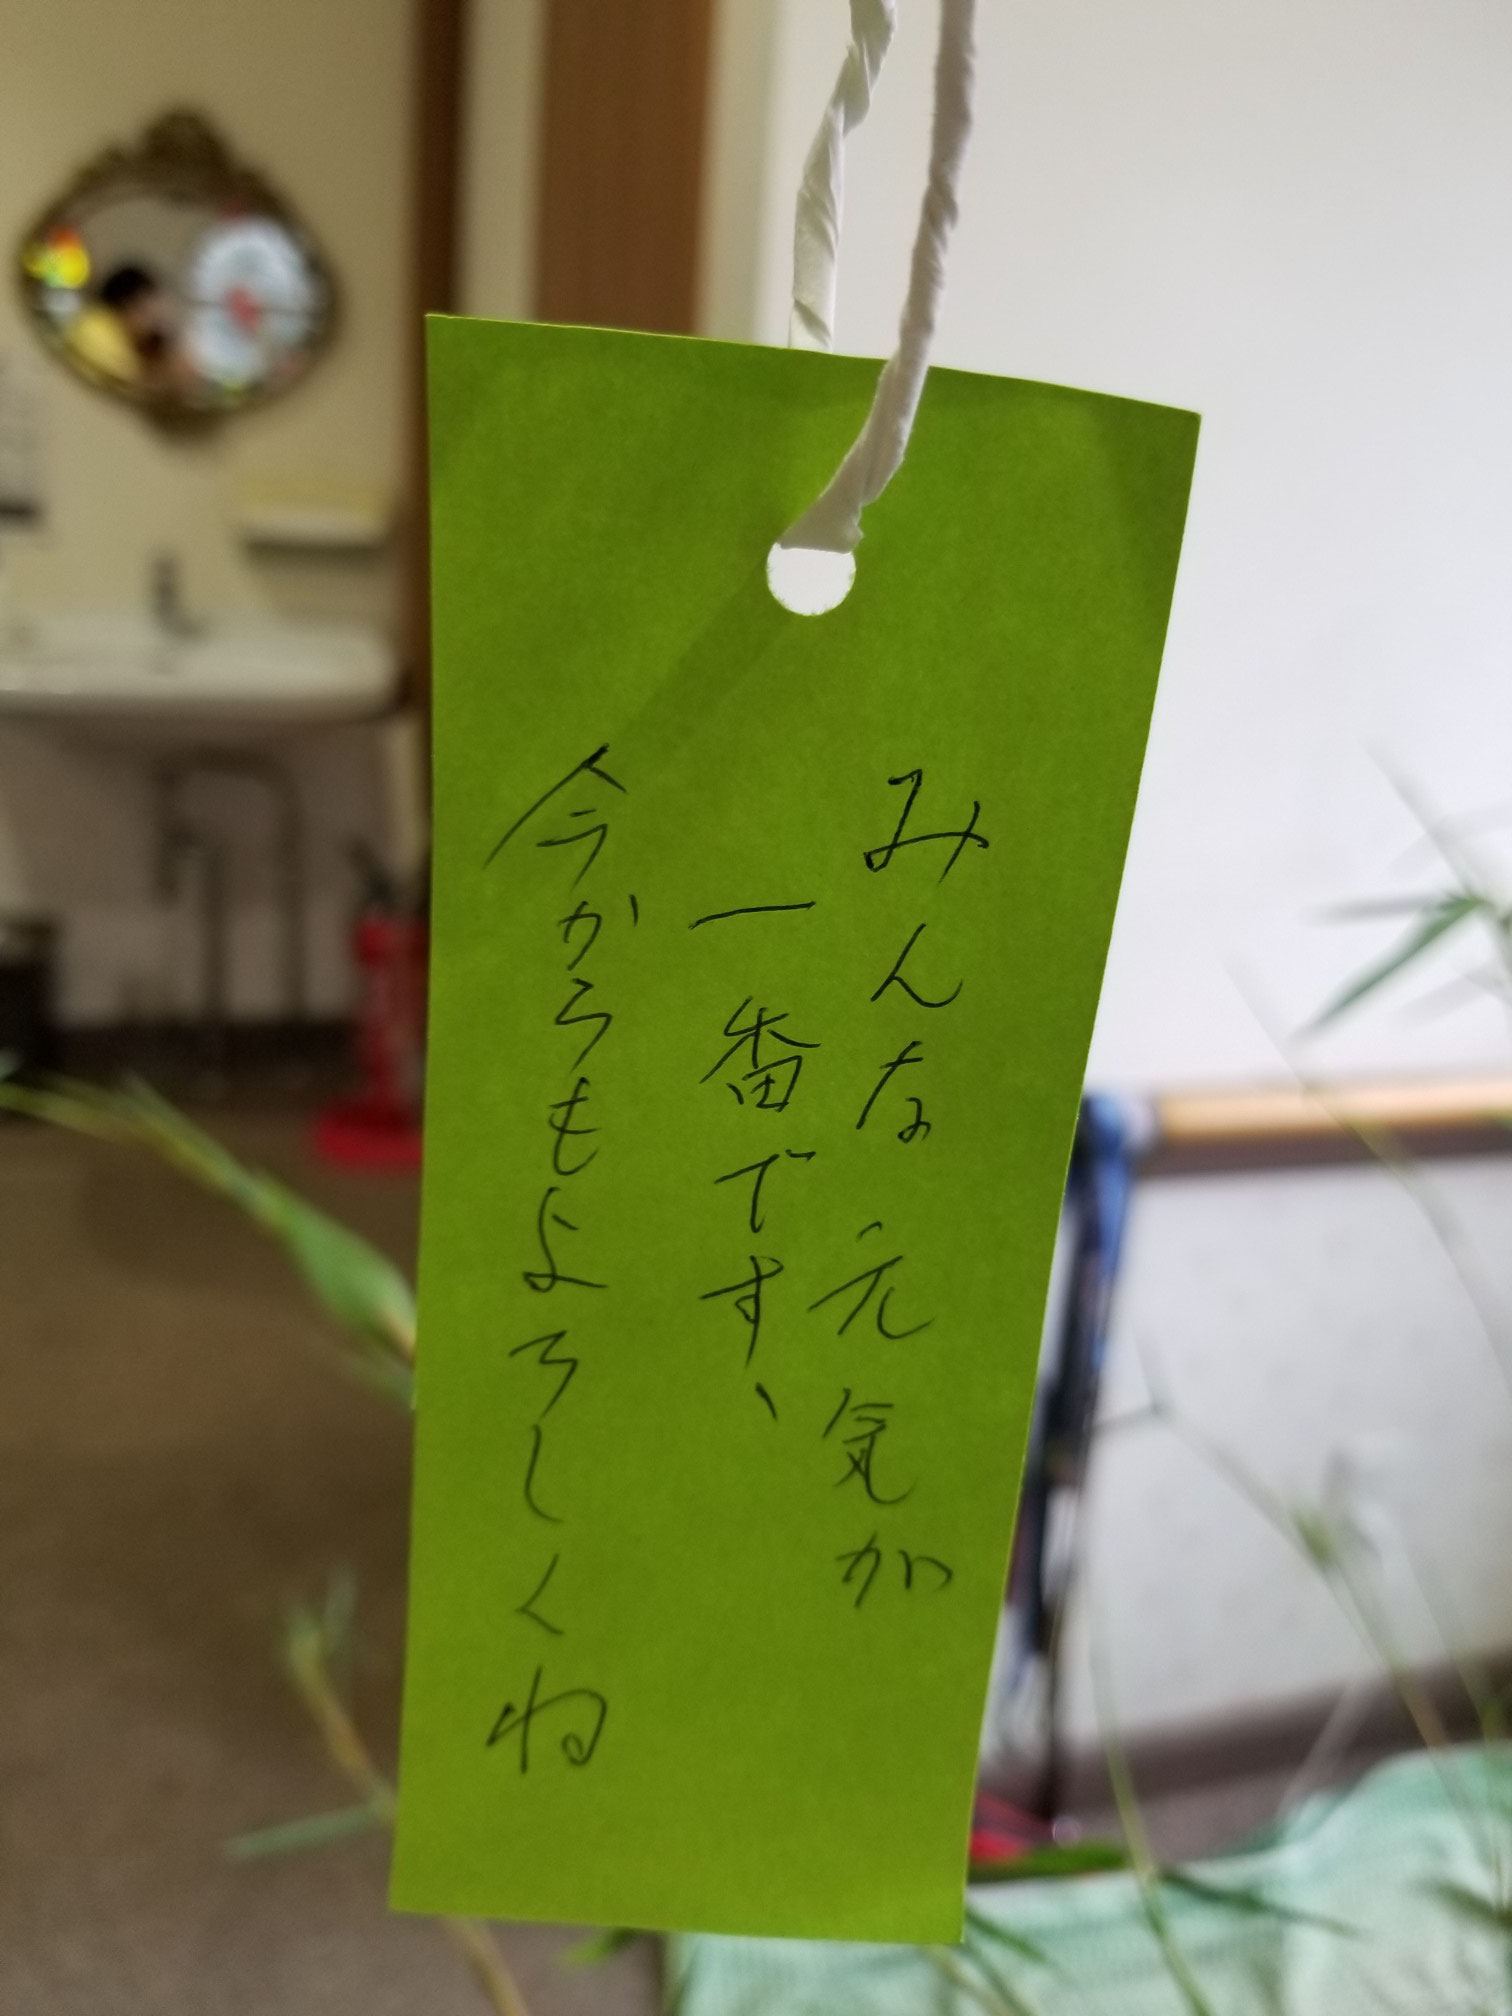 みんな元気が
一番です、
今からもよろしくね